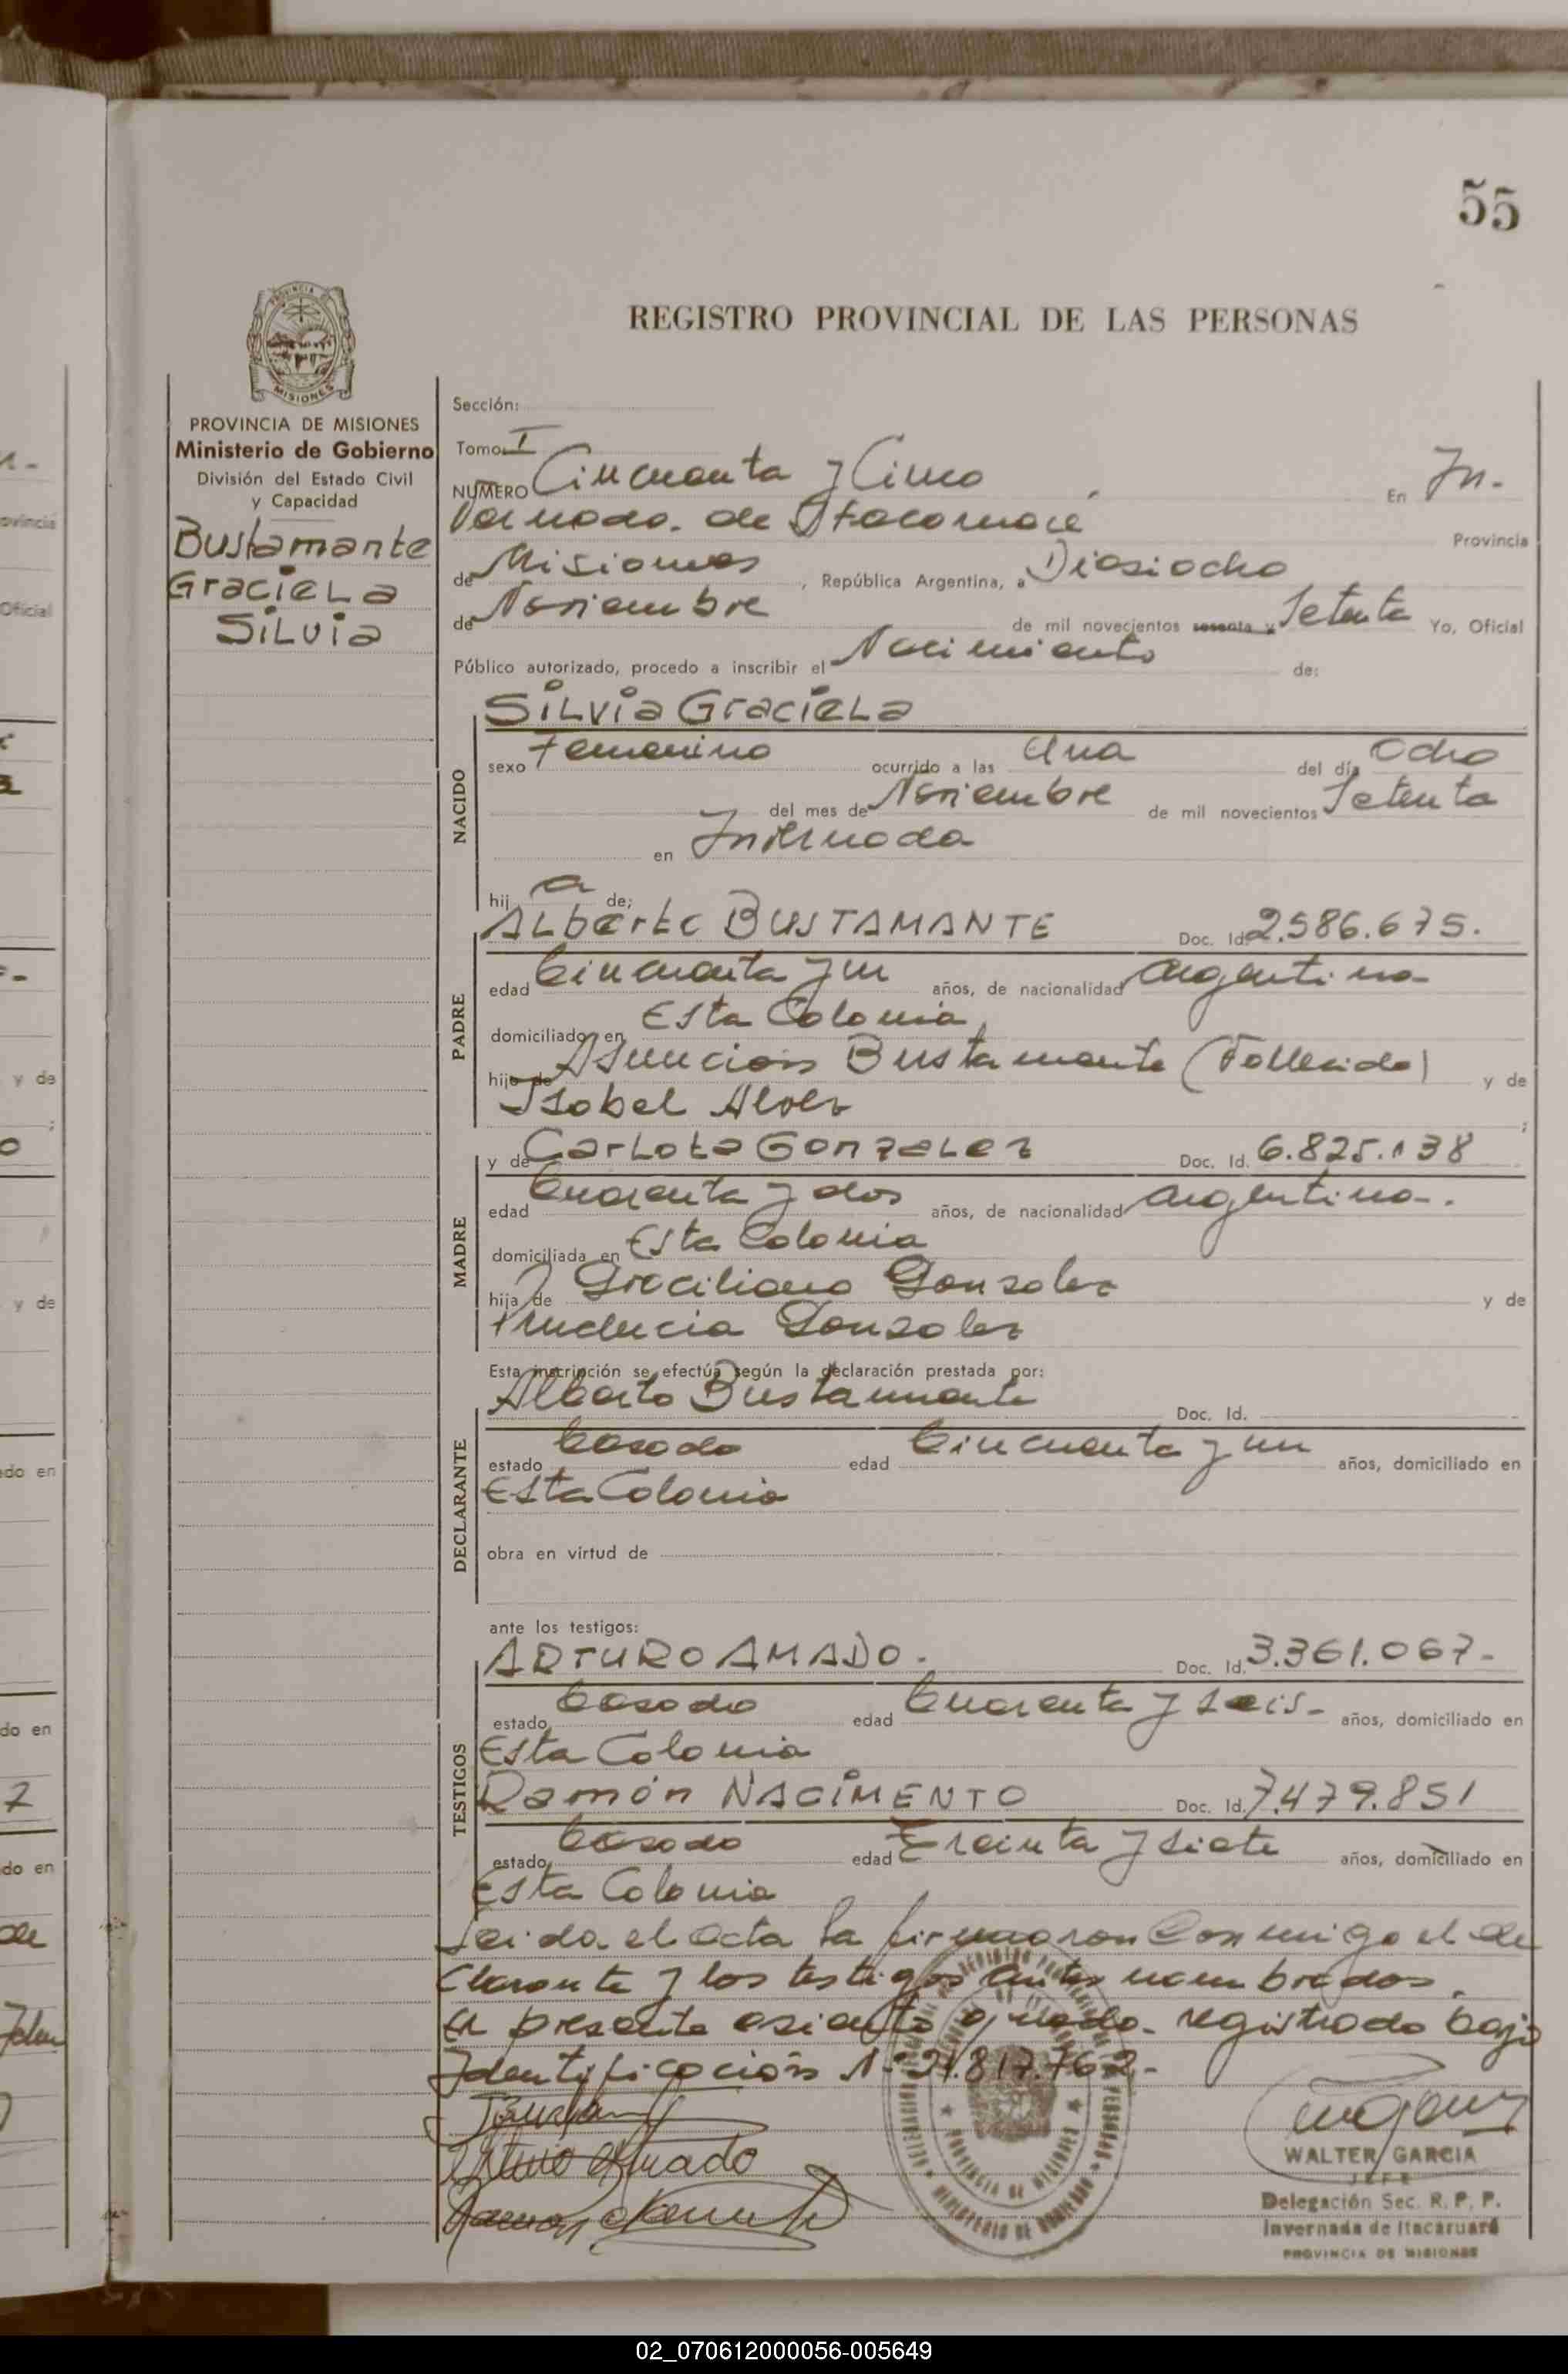 55
REGISTRO PROVINCIAL DE LAS PERSONAS
MISIONES
PROVINCIA DE MISIONES
Ministerio de Gobierno
División del Estado Civil
y Capacidad
Bustamante
Graciela
Silvia
Sección:
Tomo I
NUMERO Cincuenta y Cinco En In-
vernada de Itacaruaré Provincia
de Misiones, República Argentina, a Diesiocho
de Noviembre de mil novecientos sesenta y Setenta Yo, Oficial
Público autorizado, procedo a inscribir el Nacimiento de:
NACIDO
Silvia Graciela
sexo Femenino ocurrido a las Una del día Ocho
del mes de Noviembre de mil novecientos Setenta
en Invernada
hij a de:
PADRE
Alberto BUSTAMANTE Doc. Id. 2.586.675.
edad Cincuenta y un años, de nacionalidad Argentina
domiciliado en Esta Colonia
hijo de Asuncion Bustamante (Fallecido) y de
Isabel Alves
MADRE
y de Carlota Gonzalez Doc. Id. 6.825.138
edad Cuarenta y dos años, de nacionalidad Argentina-.
domiciliada en Esta Colonia
hija de Graciliano Gonsalez y de
Prudencia Gonsalez
DECLARANTE
Esta inscripción se efectúa según la declaración prestada por:
Alberto Bustamante Doc. Id.
estado Casado edad Cincuenta y un años, domiciliado en
Esta Colonia
obra en virtud de
ante los testigos:
TESTIGOS
ARTURO AMADO. Doc. Id. 3.361.067-
estado Casado edad Cuarenta y seis- años, domiciliado en
Esta Colonia
Ramón NACIMENTO Doc. Id. 7.479.851
estado Casado edad Treinta y siete años, domiciliado en
Esta Colonia
Leida el acta la firmaron Conmigo el de
clarante y los testigos antes nombrados.
El presente asiento queda registrado bajo
Identificación Nº 21.817.762-
Arturo Amado
WALTER GARCIA
JEFE
Delegación Sec. R. P. P.
Invernada de Itacaruaré
PROVINCIA DE MISIONES
02_070612000056-005649